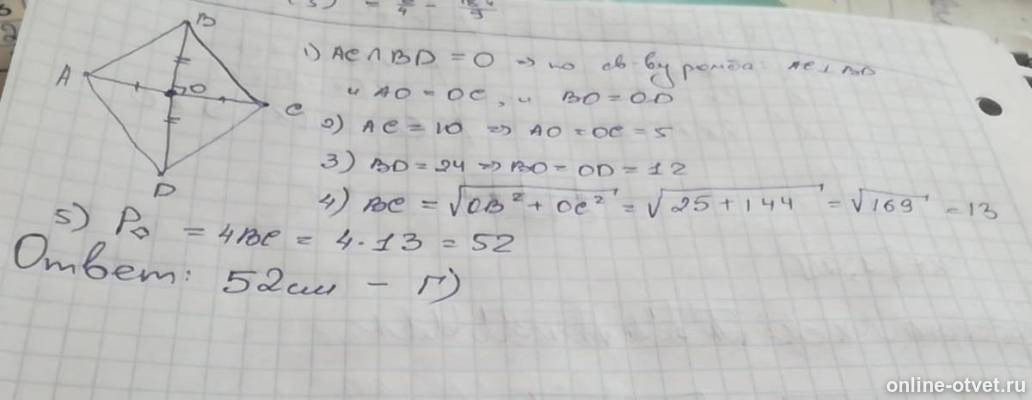 B
A
O
C
D
1) AC ∩ BD = O ⇒ по св-ву ромба: AC ⊥ BD
и AO = OC, и BO = OD
2) AC = 10 ⇒ AO = OC = 5
3) BD = 24 ⇒ BO = OD = 12
4) BC = √OB² + OC² = √25 + 144 = √169 = 13
5) P◊ = 4BC = 4 · 13 = 52
Ответ: 52см – Г)
online-otvet.ru